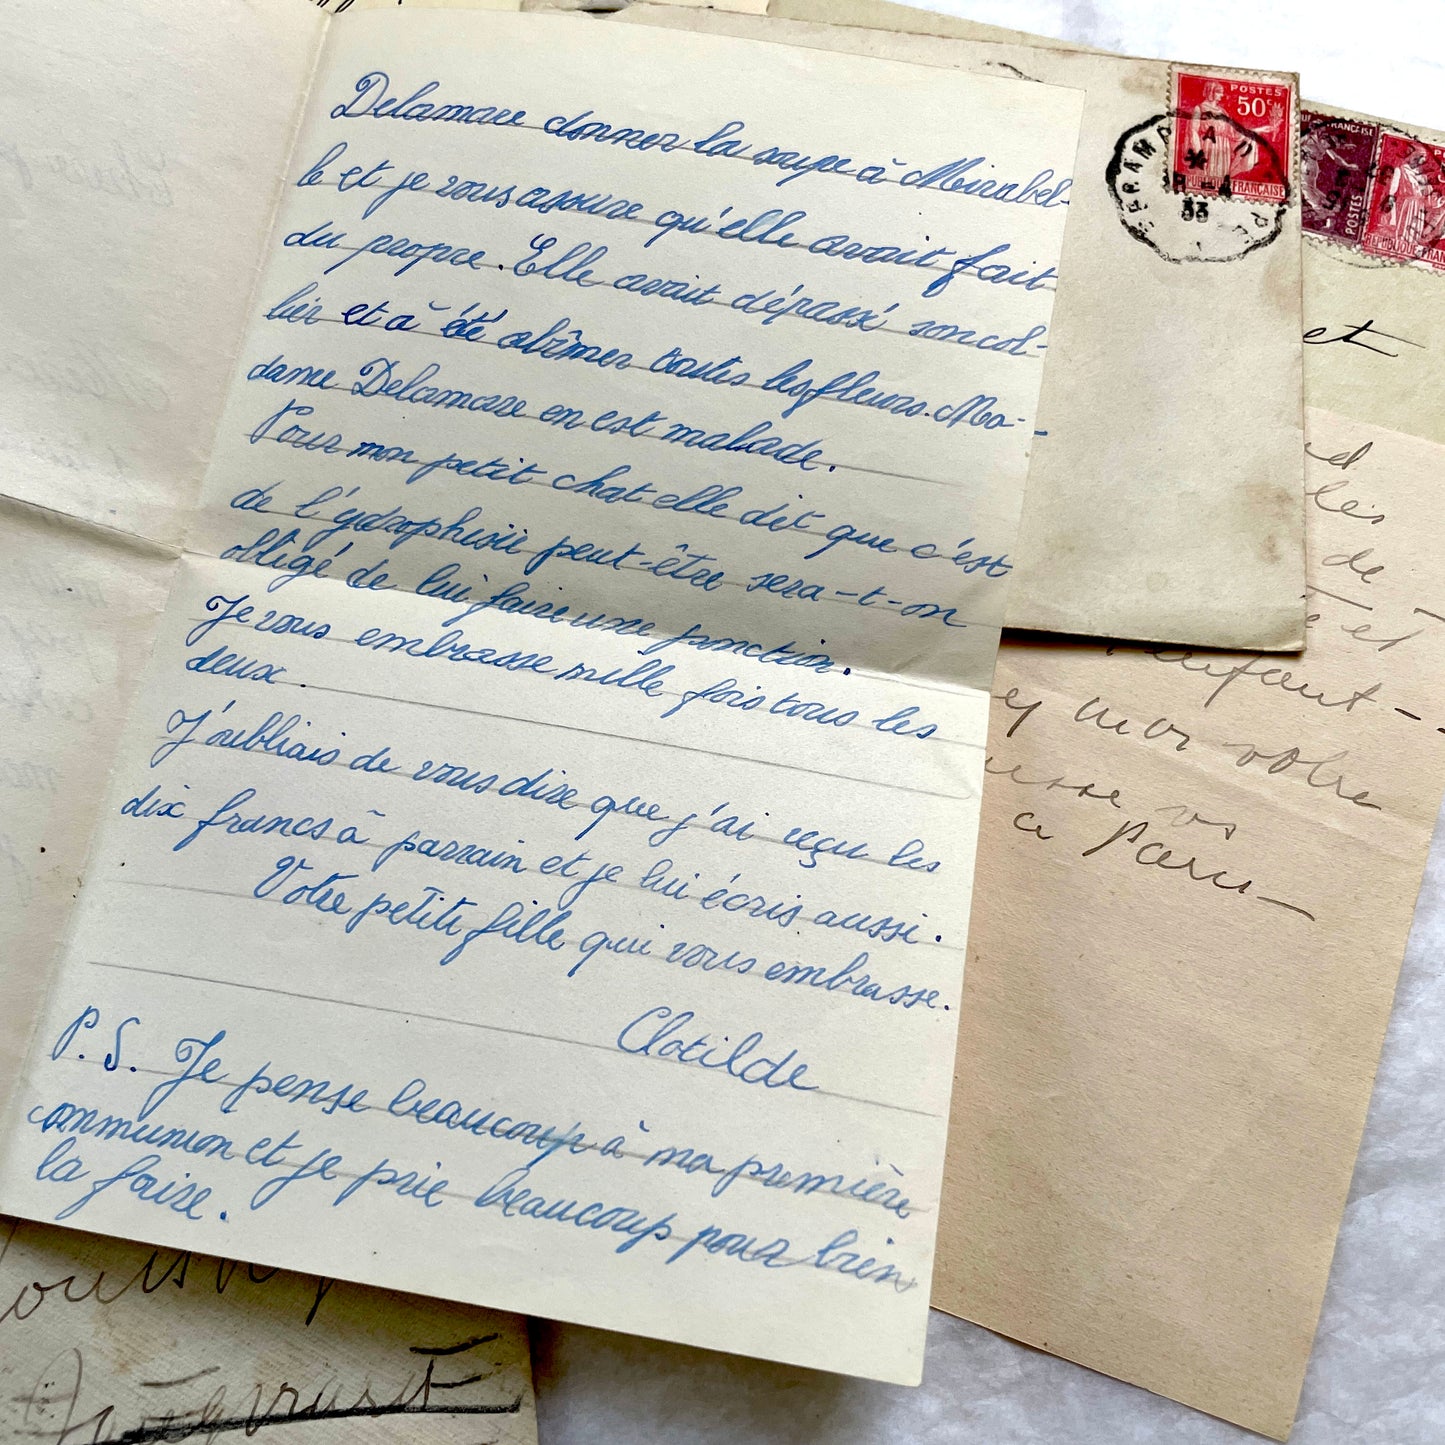 Delamare donner la soupe à Mirabel-
le et je vous assure qu'elle avait fait
du propre. Elle avait dépassé son col-
lier et à été abîmer toutes les fleurs. Ma-
dame Delamare en est malade.
Pour mon petit chat elle dit que c'est
de l'ydrophisie peut-être sera-t-on
obligé de lui faire une ponction.
Je vous embrasse mille fois tous les
deux.
J'oubliais de vous dire que j'ai reçu les
dix francs à parrain et je lui écris aussi.
Votre petite fille qui vous embrasse.
Clotilde
P.S. Je pense beaucoup à ma première
communion et je prie beaucoup pour bien
la faire.
POSTES
50c
RÉPUBLIQUE FRANÇAISE
33
POSTES
et
les
de
et
enfant
votre
vs
a Paris